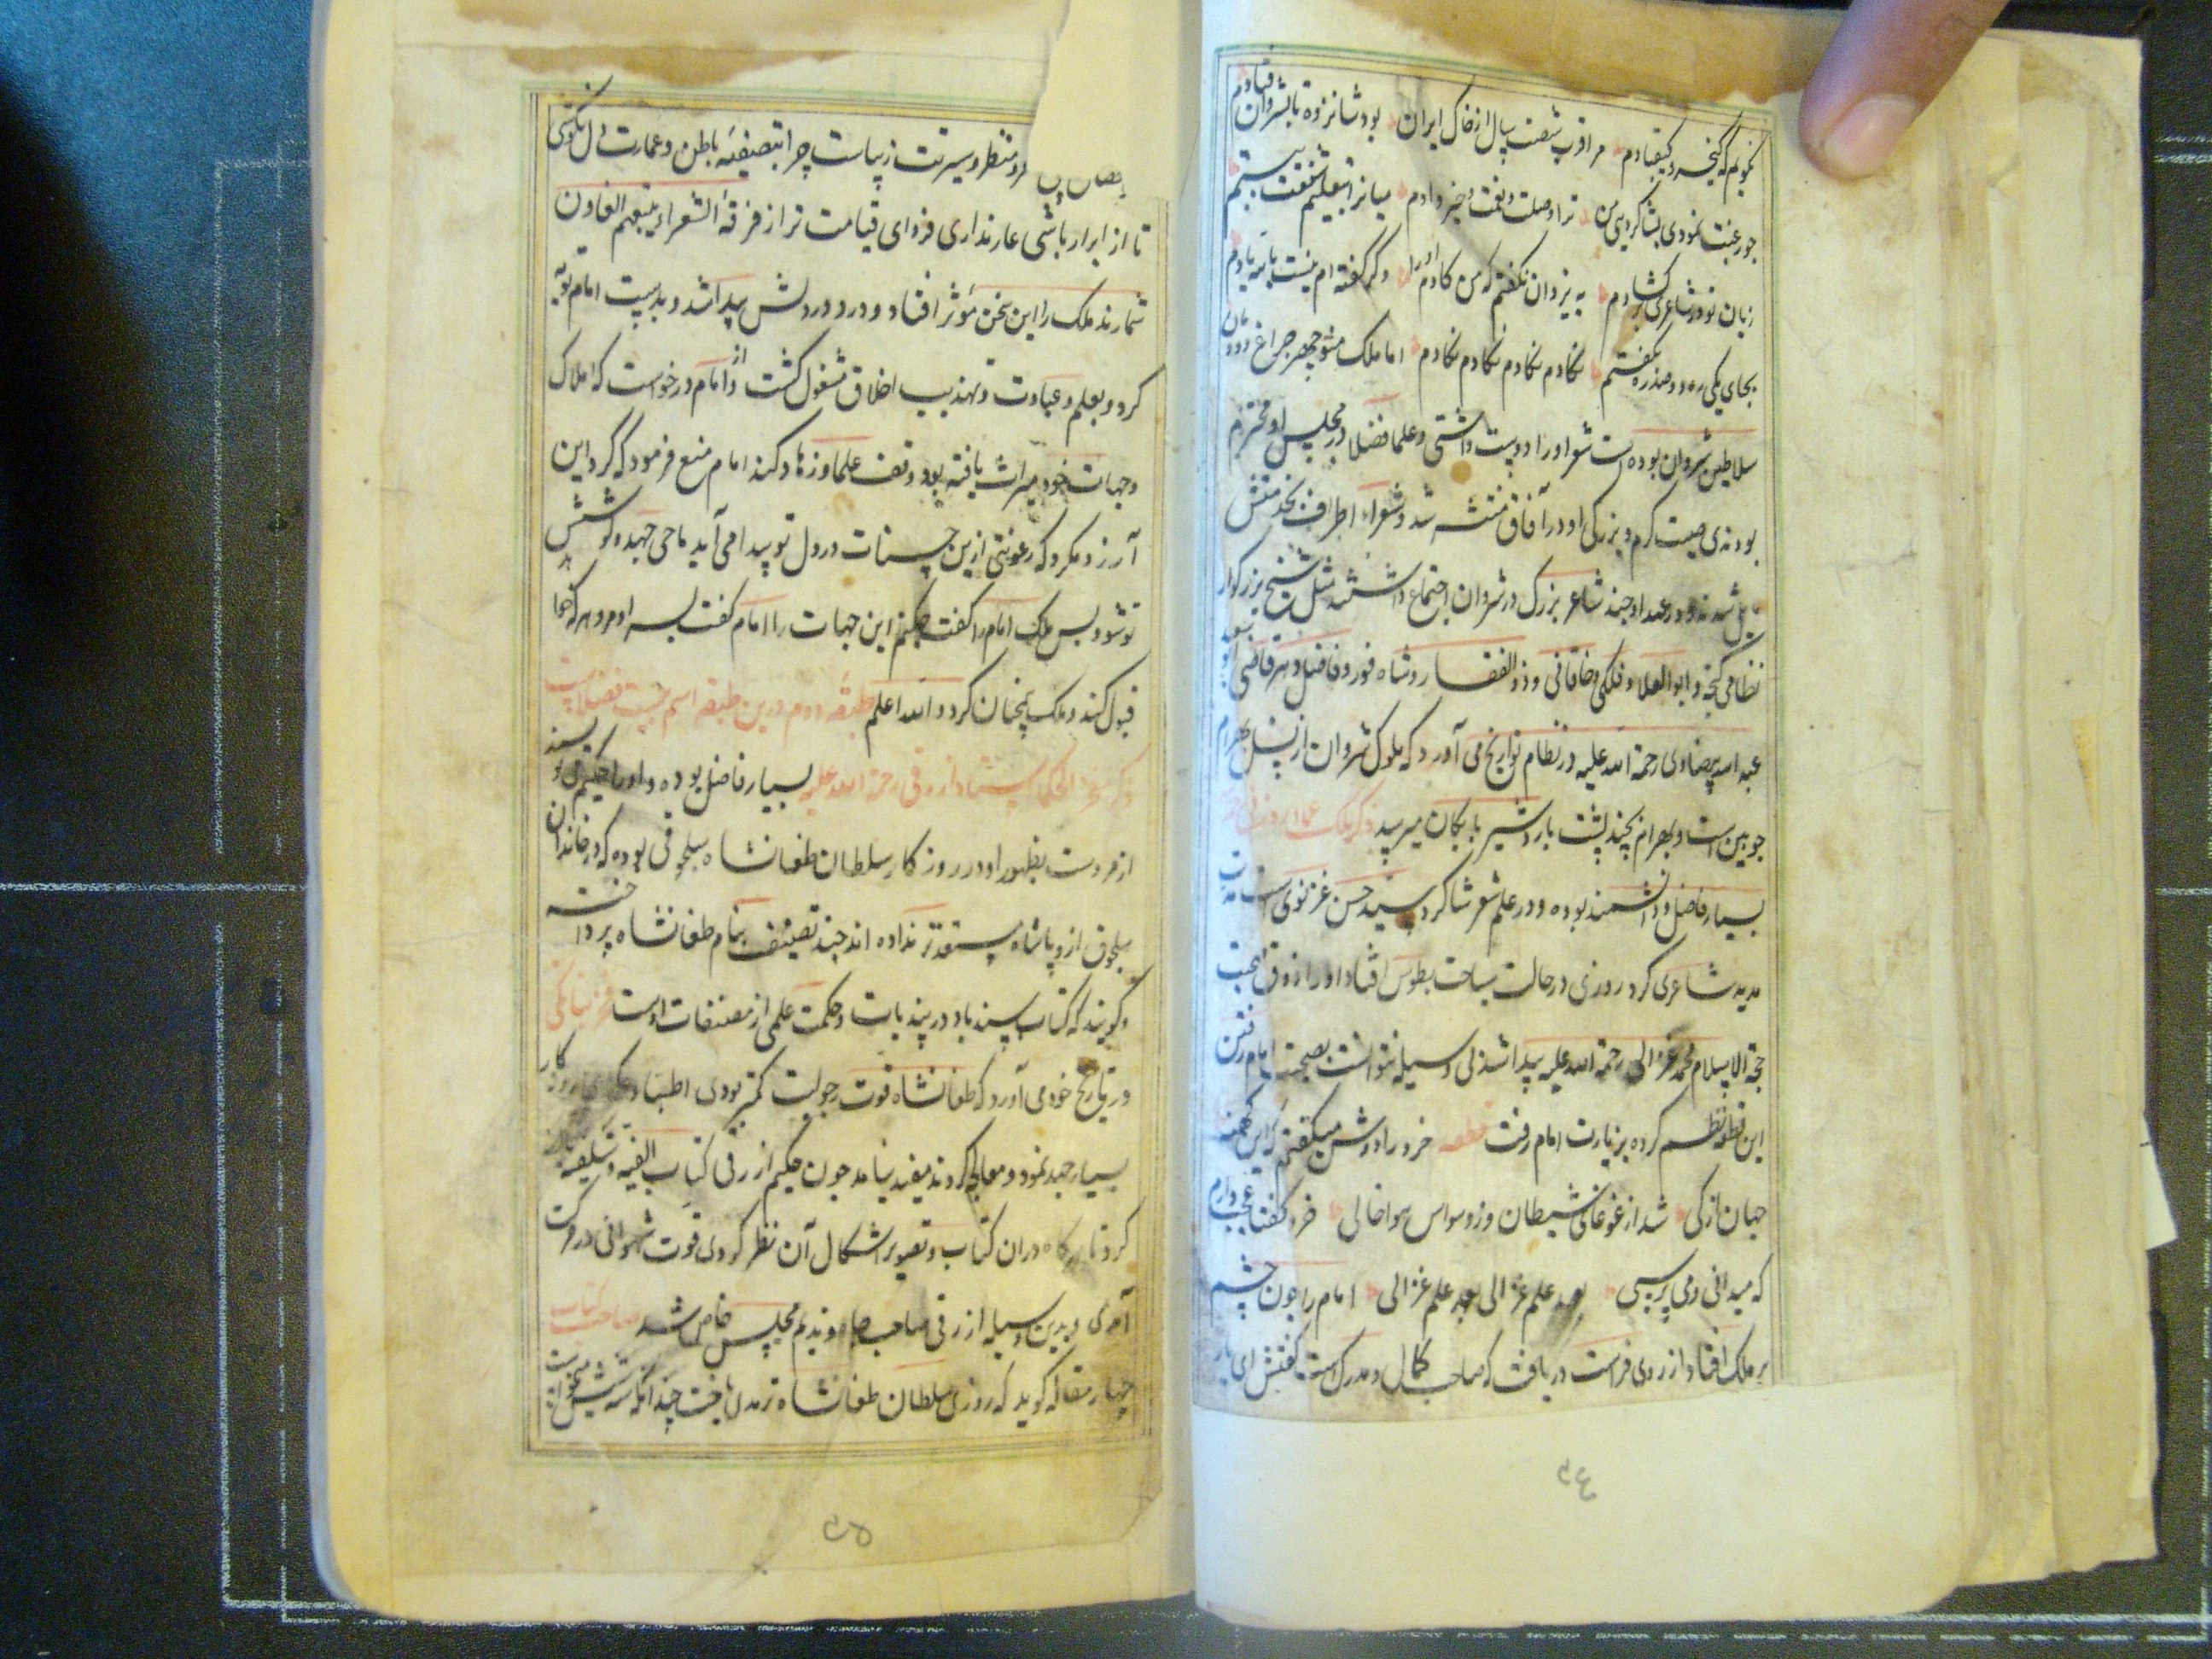 نمویم که کیخسرو و کیقبادم مرا قرب شصت سال از خاک ایران بود شانزده تا بشروان فتادم
جو رغبت نمودی بشاکردی من ترا وصلت و نعت و جیز دادم میانرا بتعلیم شفقت ببستم
زبان تو در شاعری کشادم به یزدان نکفتم که من کادم اورا وکر کفته ام نیست بالله یادم
بجای یکی ده دو صد ره بکفتم نکادم نکادم نکادم نکادم اما ملک منوچهر جراغ دودمان
سلاطین شروان بوده است شعرا ورا دوست داشتی وعلما فضلا در مجلس او محترم
بودندی صیت کرم و بزرکی او در آفاق منتشر شد وشعراء اطراف بخدمتش
مایل شدند ودر عهد او جند شاعر بزرک در شروان اجتماع داشتند مثل شیخ بزرکوار
نظامی کنجه و ابوالعلا و فلکی و خاقانی و ذوالفقار و شاه فور و فاضل دهر قاضی ابو سعید
عبد الله بیضاوی رحمة الله علیه در نظام تواریخ می آورد که ملوک شروان از نسل بهرام
جوبین است و بهرام بچند پشت بارد شیر بابکان میرسد ذکر ملک عماد زوزنی
بسیار فاضل و دانشمند بوده ودر علم شعر شاکرد سید حسن غزنوی است
مدید شاعری کرد روزی درحالت سیاحت بطوس افتاد اورا ذوق صحبت
حجة الاسلام محمد غزالی رحمة الله علیه پیدا شد بی وسیله نتوانست بصحبت امام رفتن
این قطعه نظم کرده بزیارت امام رفت قطعه خرد را دوش میکفتم که این کهنه
جهان تا کی شد از غوغای شیطان وز وسواس هوا خالی خرد کفتا عجب دارم
که میدانی ومی پرسی بعهد علم غزالی بعهد علم غزالی امام را جون جشم
بر ملک افتاد از روی فراست دریافت که صاحب کمال و مدرک است کفتش ای یار
٣٤
مرد منظر و سیرتت زیباست چرا بتصفیهٔ باطن و عمارت دل نکوشی
تا از ابرار باشی عار نداری فردای قیامت ترا از فرقهٔ الشعرا یتبعهم الغاون
شمارند ملک را این سخن مؤثر افتاد و درد در دلش پیدا شد و بدست امام توبه
کرد و بعلم و عبادت و تهذیب اخلاق مشغول کشت از امام درخواست که املاک
وجهات خود میراث یافته بود وقف علما و زهاد کند امام منع فرمود که کرد این
آرزو مکرد که رعونتی ازین حسنات در دل تو پیدا می آید ماحی جهد و کوشش
تو شود پس ملک امام را کفت چکنم این جهات را امام کفت بسر او مرو هر که خواهد
قبول کند و ملک همچنان کرد والله اعلم طبقهٔ دوم درین طبقه اسم بیست فضلاست
ذکر فخر الحکما استاد ازرقی رحمة الله علیه بسیار فاضل بوده و اورا حکیم می نویسند
از مروست بظهور او در روز کار سلطان طغانشاه سلجوقی بوده که در خاندان
سلجوق ازو پادشاه مستعدتر نداده اند چند تصنیف بنام طغانشاه پرداخته
و کویند که کتاب سندباد در پندیات و حکمت علمی از مصنفات اوست فخر بناکتی
در تاریخ خود می آورد که طغانشاه قوت رجولیت کمتر بودی اطبا
بسیار جهد نمود ومعالجه کردند مفید نیامد جون حکیم ازرقی کتاب الفیه وشلفیه
کرد تا هرکاه دران کتاب و تصویر اشکال آن نظر کردی قوت شهوانی در حرکت
آمدی و بدین وسیله ازرقی صاحب جاه وندیم مجلس خاص شد صاحب کتاب
چهار مقاله کوید که روزی سلطان طغانشاه نرد می باخت چندانکه سه شیش میخواست
٣٥